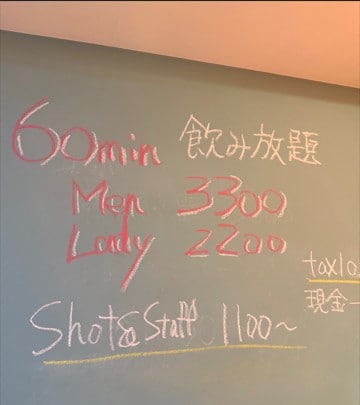 60min 飲み放題
Men 3300
Lady 2200
tax10
現金
Shot&Staff 1100~